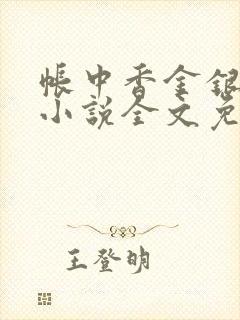 帐中香金银
小说全文免
王登明